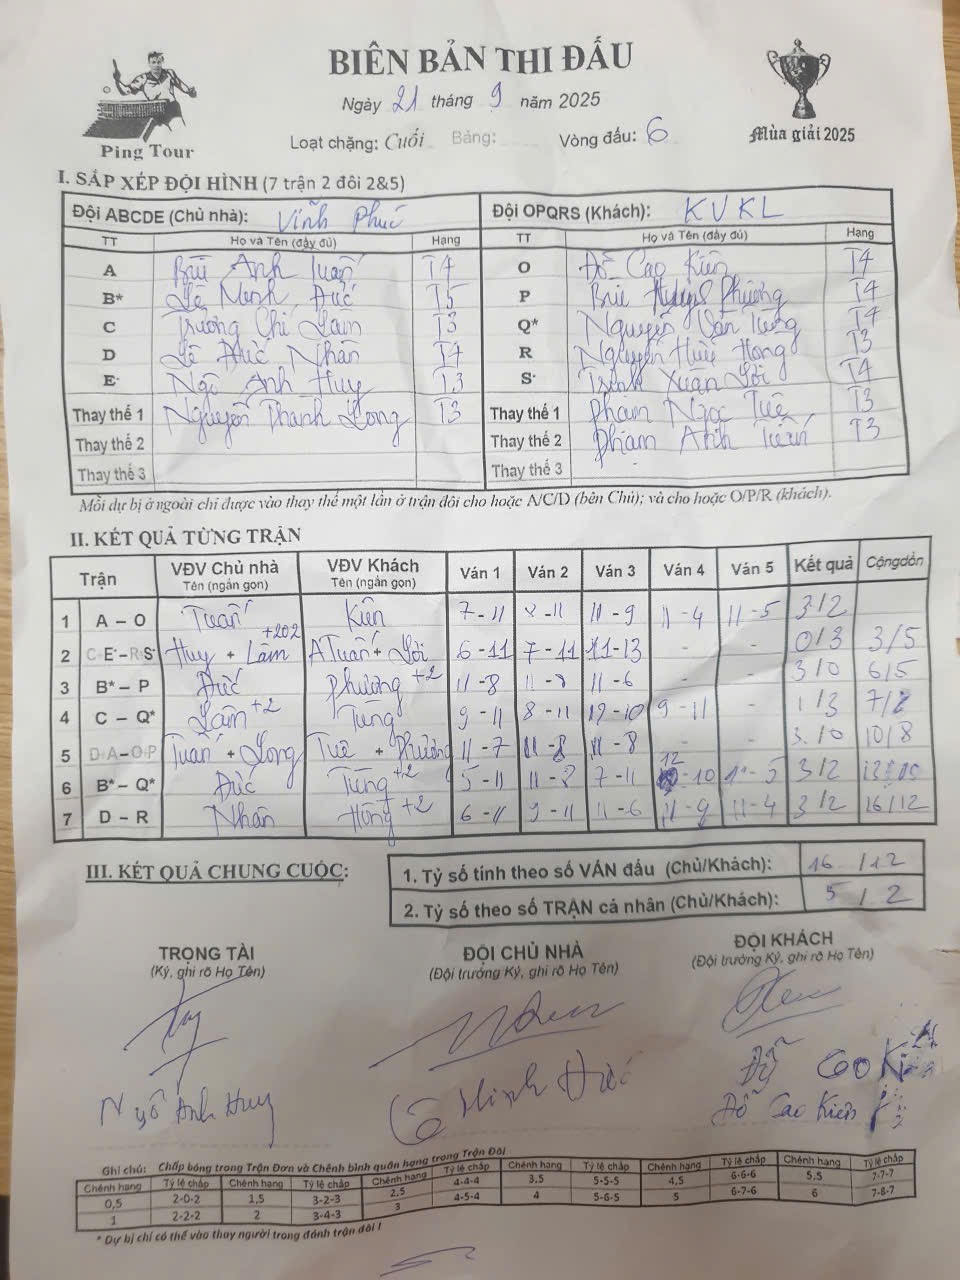 BIÊN BẢN THI ĐẤU
Ngày 21 tháng 9 năm 2025
Ping Tour
Loạt chặng: Cuối Bảng: Vòng đấu: 6
Mùa giải 2025
I. SẮP XẾP ĐỘI HÌNH (7 trận 2 đôi 2&5)
Đội ABCDE (Chủ nhà): Vĩnh Phúc Đội OPQRS (Khách): KVKL
TT Họ và Tên (đầy đủ) Hạng TT Họ và Tên (đầy đủ) Hạng
A Bùi Anh Tuấn T4 O Đỗ Cao Kiên T4
B* Lê Minh Đức T5 P Bùi Phương T4
C Trương Chí Lâm T3 Q* Nguyễn Văn Tùng T4
D Lê Đức Nhân T4 R Nguyễn Hữu Hong T3
E* Ngô Anh Huy T3 S* Trịnh Xuân Lợi T4
Thay thế 1 Nguyễn Thanh Long T3 Thay thế 1 Phạm Ngọc Tuê T3
Thay thế 2 Thay thế 2 Phạm Anh Tuấn T3
Thay thế 3 Thay thế 3
Mỗi dự bị ở ngoài chỉ được vào thay thế một lần ở trận đôi cho hoặc A/C/D (bên Chủ); và cho hoặc O/P/R (khách).
II. KẾT QUẢ TỪNG TRẬN
Trận VĐV Chủ nhà Tên (ngắn gọn) VĐV Khách Tên (ngắn gọn) Ván 1 Ván 2 Ván 3 Ván 4 Ván 5 Kết quả Cộng dồn
1 A – O Tuấn Kiên 7-11 8-11 11-9 11-4 11-5 3/2
2 C E* – R S* Huy + Lâm +202 A Tuấn + Lợi 6-11 7-11 11-13 - - 0/3 3/5
3 B* – P Đức Phương +2 11-8 11-8 11-6 - - 3/0 6/5
4 C – Q* Lâm +2 Tùng 9-11 8-11 12-10 9-11 - 1/3 7/8
5 D A – O P Tuấn + Long Tuê + Phương 11-7 11-8 11-8 3/0 10/8
6 B* – Q* Đức Tùng +2 5-11 11-8 7-11 12-10 11-5 3/2 13/10
7 D – R Nhân Hồng +2 6-11 9-11 11-6 11-9 11-4 3/2 16/12
III. KẾT QUẢ CHUNG CUỘC:
1. Tỷ số tính theo số VÁN đấu (Chủ/Khách): 16/12
2. Tỷ số theo số TRẬN cá nhân (Chủ/Khách): 5/2
TRỌNG TÀI ĐỘI CHỦ NHÀ ĐỘI KHÁCH
(Ký, ghi rõ Họ Tên) (Đội trưởng Ký, ghi rõ Họ Tên) (Đội trưởng Ký, ghi rõ Họ Tên)
Ngô Anh Huy Lê Minh Đức Đỗ Cao Kiên
Đỗ Cao Kiên
Ghi chú: Chấp bóng trong Trận Đơn và Chênh bình quân hạng trong Trận Đôi
Chênh hạng Tỷ lệ chấp Chênh hạng Tỷ lệ chấp Chênh hạng Tỷ lệ chấp Chênh hạng Tỷ lệ chấp Chênh hạng Tỷ lệ chấp Chênh hạng Tỷ lệ chấp
0,5 2-0-2 1,5 3-2-3 2,5 4-4-4 3,5 5-5-5 4,5 6-6-6 5,5 7-7-7
1 2-2-2 2 3-4-3 3 4-5-4 4 5-6-5 5 6-7-6 6 7-8-7
* Dự bị chỉ có thể vào thay người trong đánh trận đôi !